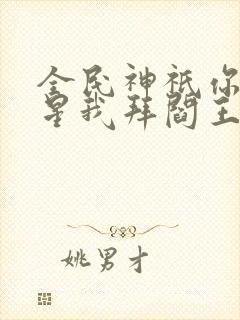 全民神祇你
星我拜閻王
姚男才